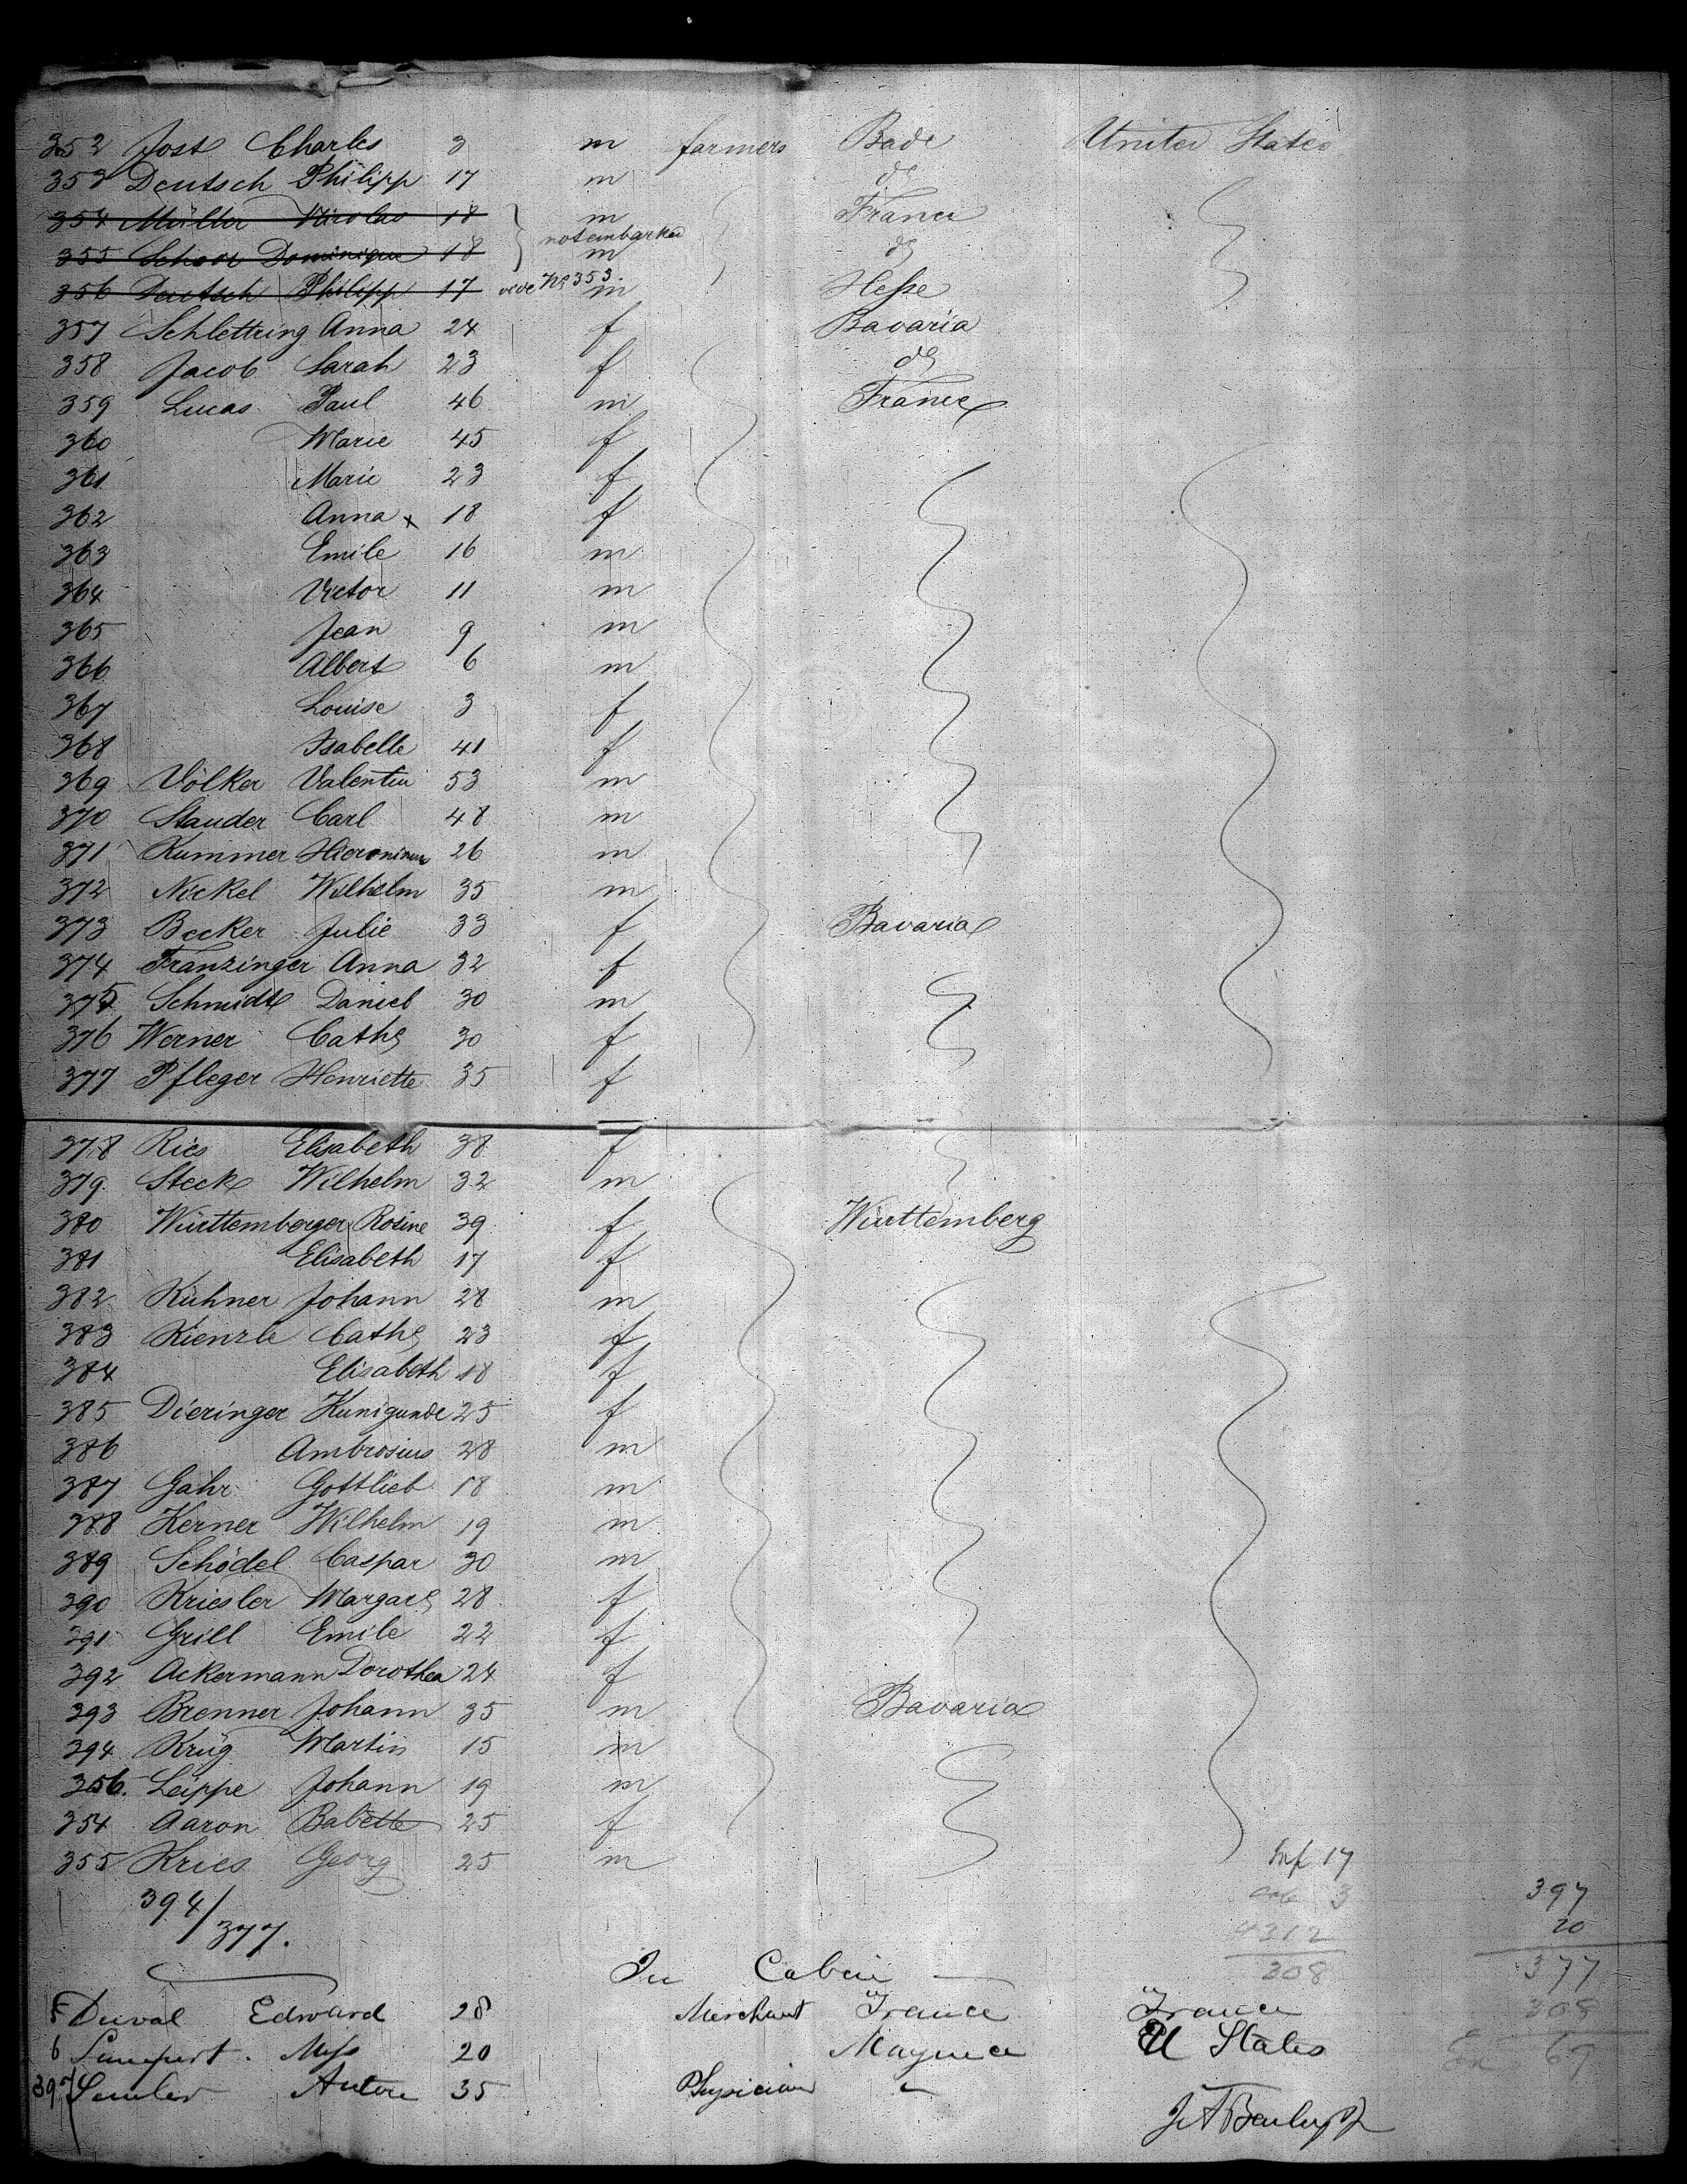 352 Jost Charles 3 m farmers Bade United States
353 Deutsch Philipp 17 m do
354 Müller Nicolas 18 m France
not embarked
355 Schoor Dominique 18 m do
356 Deutsch Philipp 17 vide No 353 m Hesse
357 Schlettring Anna 24 f Bavaria
358 Jacob Sarah 23 f do
359 Lucas Paul 46 m France
360 Marie 45 f
361 Marie 23 f
362 Anna x 18 f
363 Emile 16 m
364 Victor 11 m
365 Jean 9 m
366 Albert 6 m
367 Louise 3 f
368 Isabelle 41 f
369 Völker Valentin 53 m
370 Stauder Carl 48 m
371 Kummer Hieronimus 26 m
372 Nickel Wilhelm 35 m
373 Becker Julie 33 f Bavaria
374 Franzinger Anna 32 f
375 Schmidt Daniel 30 m
376 Werner Cathe 30 f
377 Pfleger Henriette 35 f
378 Ries Elisabeth 38 f
379 Steck Wilhelm 32 m
380 Württemberger Rosine 39 f Württemberg
381 Elisabeth 17 f
382 Kühner Johann 28 m
383 Kienzle Cathe 23 f
384 Elisabeth 18 f
385 Dieringer Kunigunde 25 f
386 Ambrosius 28 m
387 Gahr Gottlieb 18 m
388 Kerner Wilhelm 19 m
389 Schödel Caspar 30 m
390 Kriesler Margare 28 f
391 Grill Emile 22 f
392 Ackermann Dorothea 24 f
393 Brenner Johann 35 m Bavaria
394 Krug Martin 15 m
356. Leippe Johann 19 m
354 Aaron Babette 25 f
355 Kries Georg 25 m Inf 17
394/377. 3 397
4312 20
308 377
In Cabin
5 Duval Edward 28 Merchant France France 308
6 Miss 20 Mayence U States 69
397 Anton 35 Physician "